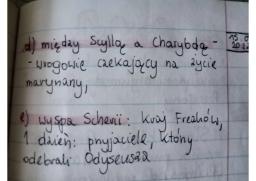 d) między Scyllą a Charybdą -
- wrogowie czekający na życie
marynarzy,
e) wyspa Scherii: Kraj Feaków,
1 dzień: przyjaciele, który
odebrali Odyseusza